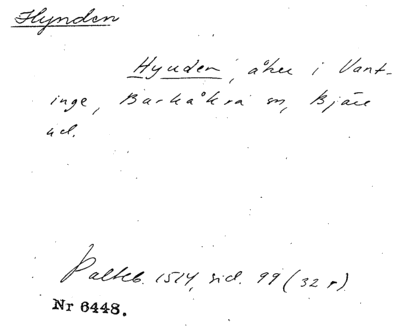 Hynden
Hynden, åker i Vant-
inge, Barkåkra sn, Bjäre
hd.
Palteb. 1514, sid. 99 (32 r).
Nr 6448.